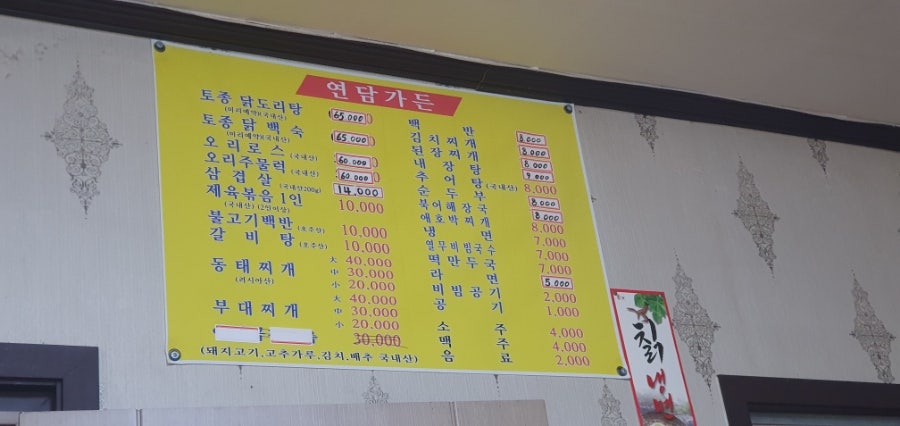 연담가든
토종 닭도리탕 65.000
(미리예약)(국내산)
토종 닭 백숙 65.000
(미리예약)(국내산)
오리로스 (국내산) 60.000
오리주물럭 (국내산) 60.000
삼겹살 (국내산200g) 14.000
제육볶음1인 10,000
(국내산) (2인이상)
불고기백반 (호주산) 10,000
갈비탕 (호주산) 10,000
동태찌개 大 40,000
(러시아산) 中 30,000
小 20,000
부대찌개 大 40,000
中 30,000
小 20,000
30,000
백반 8.000
김치찌개 8.000
된장찌개 8.000
내장탕 9.000
추어탕 (국내산) 8,000
순두부 8.000
북어해장국 8.000
애호박찌개 8,000
냉면 7,000
열무비빔국수 7,000
떡만두국 7,000
라면 5.000
비빔공기 2,000
공기 1,000
소주 4,000
맥주 4,000
음료 2,000
(돼지고기,고추가루,김치,배추 국내산)
칡냉면